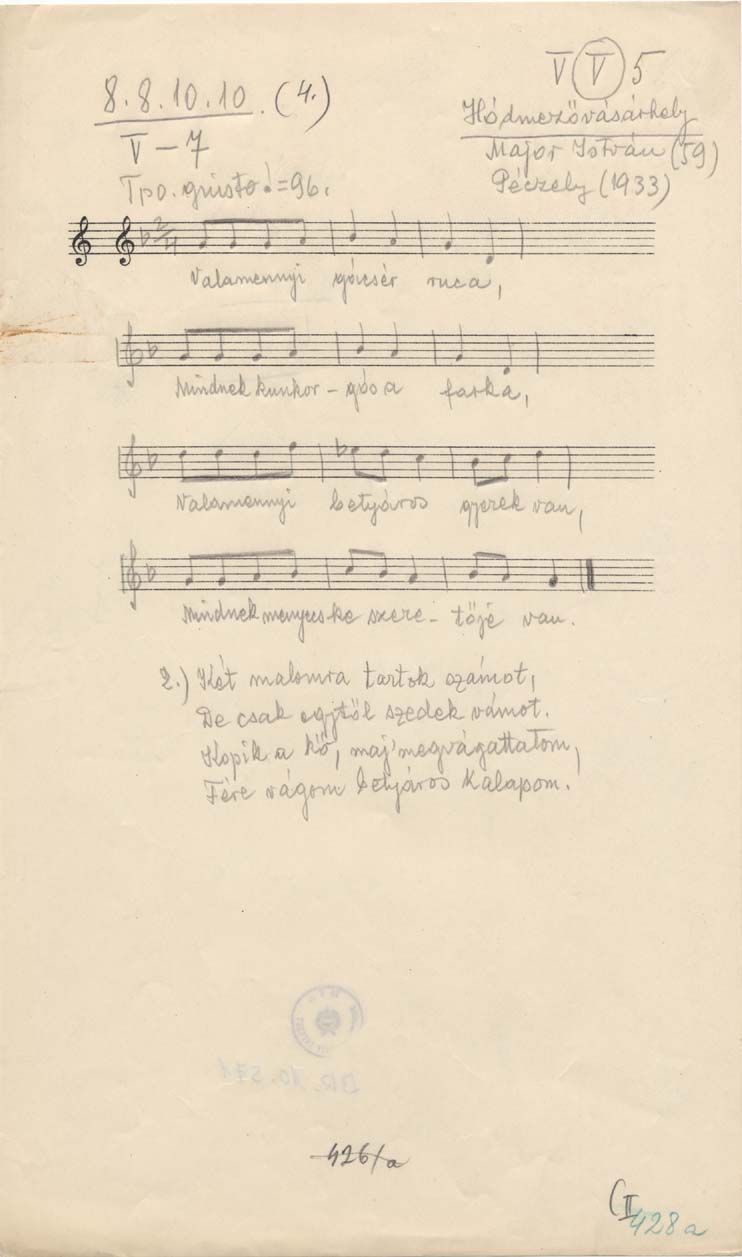 8.8.10.10. (4.)
V V 5
V – 7
Hódmezővásárhely
Major István (59)
Tpo. giusto ♩=96.
Péczely (1933)
2/4
Valamennyi gócsér ruca,
Mindnek kunkor-gós a farka,
Valamennyi betyáros gyerek van,
Mindnek menyecske szere-tője van.
2.) Két malomra tartok számot,
De csak egytől szedek vámot.
Kopik a kő, maj' megvágattatom,
Félre vágom betyáros kalapom.
426/a
II
428a